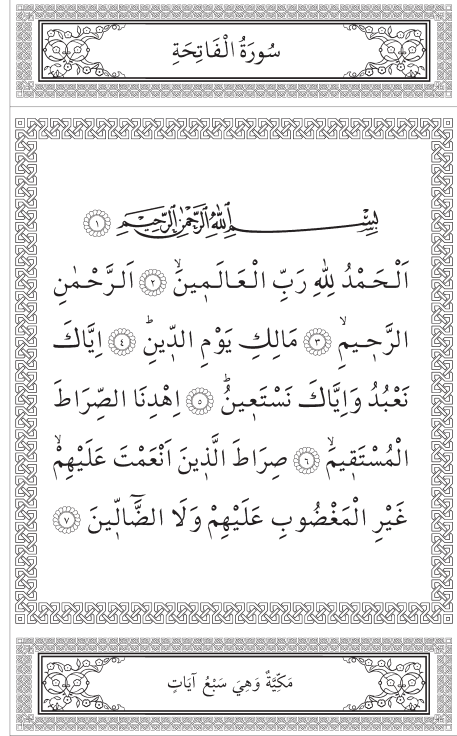 سُورَةُ الْفَاتِحَةِ
بِسْمِ اللهِ الرَّحْمٰنِ الرَّحِيمِ ﴿١﴾
اَلْحَمْدُ لِلهِ رَبِّ الْعَالَمِينَۙ ﴿٢﴾ اَلرَّحْمٰنِ
الرَّحِيمِۙ ﴿٣﴾ مَالِكِ يَوْمِ الدِّينِۜ ﴿٤﴾ اِيَّاكَ
نَعْبُدُ وَاِيَّاكَ نَسْتَعِينُۜ ﴿٥﴾ اِهْدِنَا الصِّرَاطَ
الْمُسْتَقِيمَۙ ﴿٦﴾ صِرَاطَ الَّذِينَ اَنْعَمْتَ عَلَيْهِمْۙ
غَيْرِ الْمَغْضُوبِ عَلَيْهِمْ وَلَا الضَّٓالِّينَ ﴿٧﴾
مَكِّيَّةٌ وَهِيَ سَبْعُ آيَاتٍ